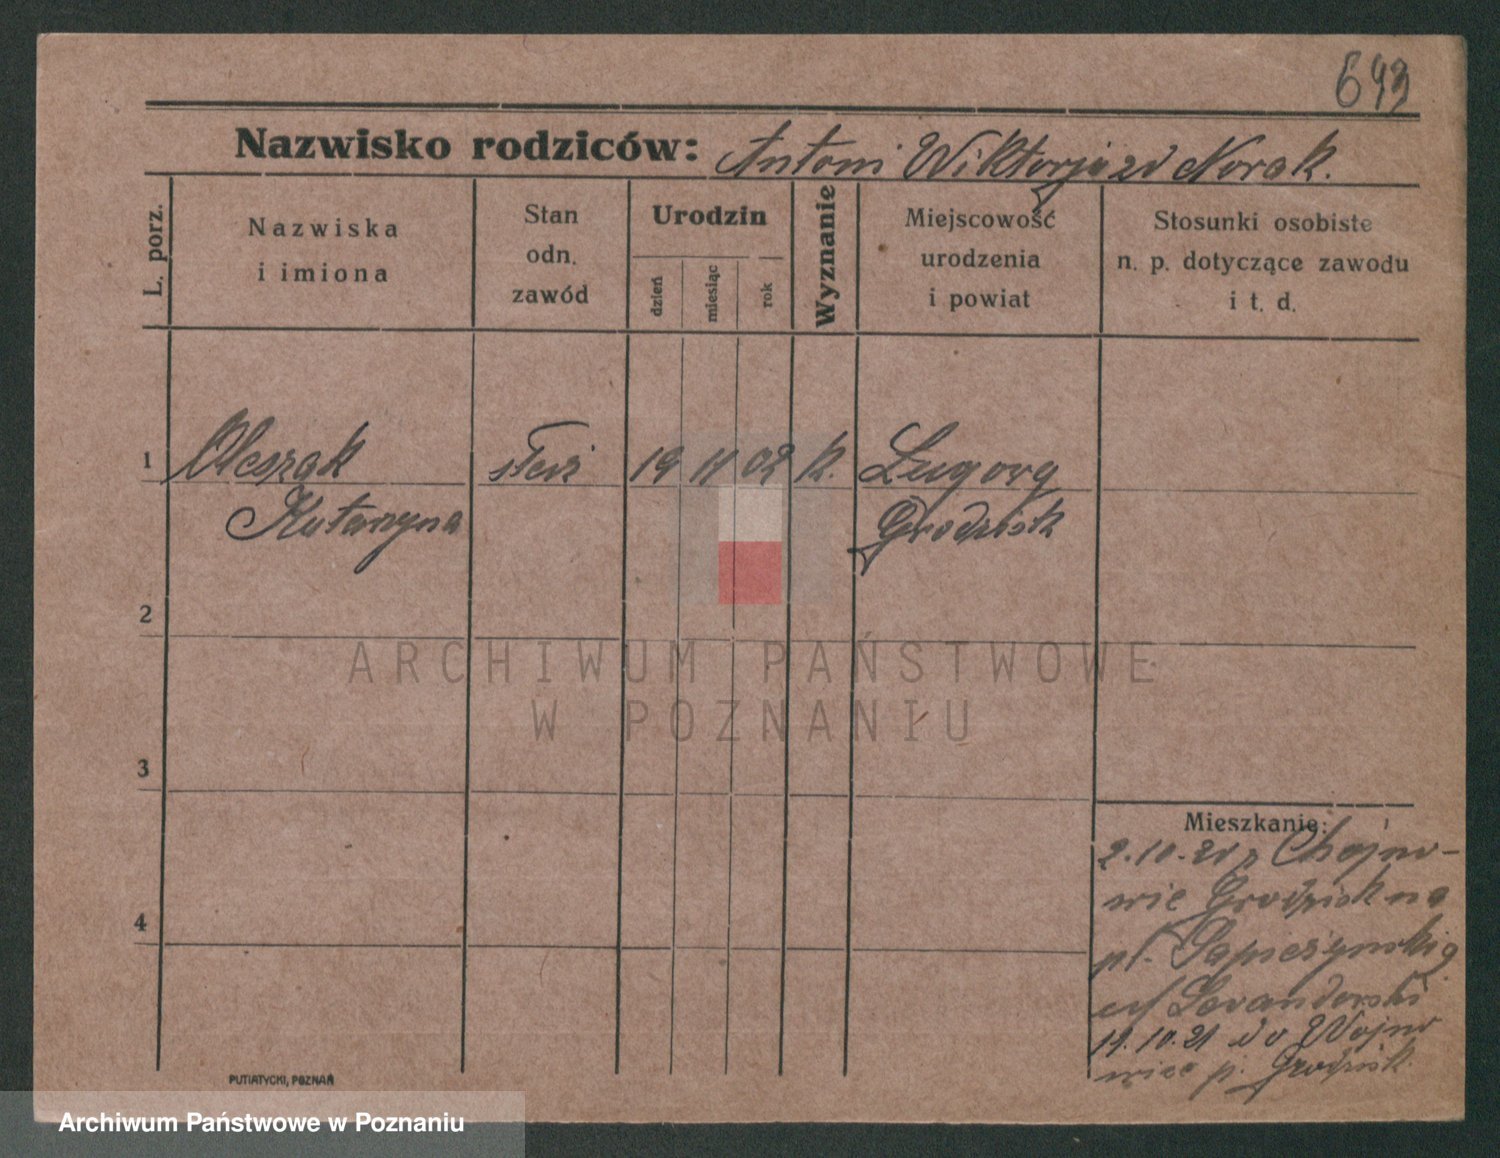 643
Nazwisko rodziców: Antoni Wiktorja zd Nowak.
L. porz.
Nazwiska
i imiona
Stan
odn.
zawód
Urodzin
dzień
miesiąc
rok
Wyznanie
Miejscowość
urodzenia
i powiat
Stosunki osobiste
n. p. dotyczące zawodu
i t. d.
1 Oleszak służ 19 11 02 k.
Katarzyna Grodzisk
2
ARCHIWUM PAŃSTWOWE
W POZNANIU
3
Mieszkanie:
2.10.21 z
Grodzisk na
4
pl. Sapieżyński 9
11.10.21 do Wojno
wice p. Grodzisk.
PUTIATYCKI, POZNAŃ
Archiwum Państwowe w Poznaniu